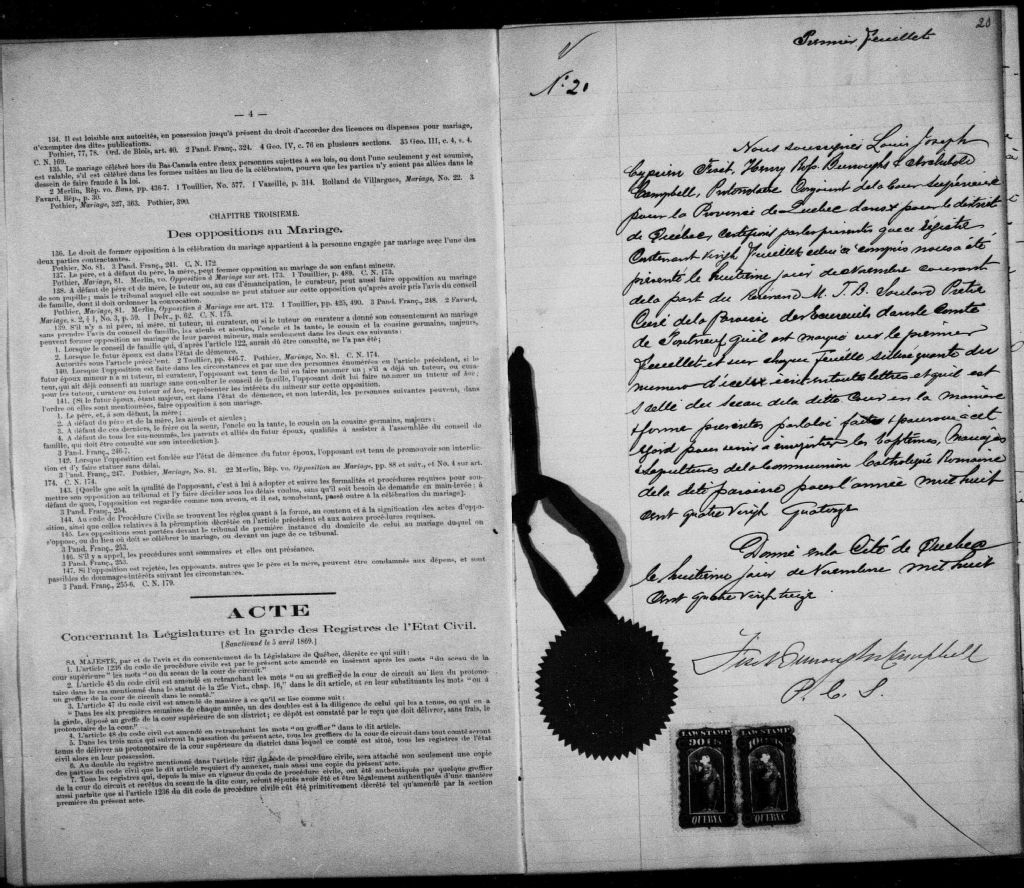 — 4 —
134. Il est loisible aux autorités, en possession jusqu'à présent du droit d'accorder des licences ou dispenses pour mariage,
d'exempter des dites publications.
Pothier, 77, 78. Ord. de Blois, art. 40. 2 Pand. Franç., 324. 4 Geo. IV, c. 76 en plusieurs sections. 35 Geo. III, c. 4, s. 4.
C. N. 169.
135. Le mariage célébré hors du Bas-Canada entre deux personnes sujettes à ses lois, ou dont l'une seulement y est soumise,
est valable, s'il est célébré dans les formes usitées au lieu de la célébration, pourvu que les parties n'y soient pas allées dans le
dessein de faire fraude à la loi.
2 Merlin, Rép. vo. Bans, pp. 436-7. 1 Touillier, No. 577. 1 Vazeille, p. 314. Rolland de Villargues, Mariage, No. 22. 3
Favard, Rép., p. 30.
Pothier, Mariage, 327, 363. Pothier, 390.
CHAPITRE TROISIEME.
Des oppositions au Mariage.
136. Le droit de former opposition à la célébration du mariage appartient à la personne engagée par mariage avec l'une des
deux parties contractantes.
Pothier, No. 81. 3 Pand. Franç., 241. C. N. 172.
137. Le père, et à défaut du père, la mère, peut former opposition au mariage de son enfant mineur.
Pothier, Mariage, 81. Merlin, vo. Opposition à Mariage sur art. 173. 1 Touillier, p. 489. C. N. 173.
138. A défaut de père et de mère, le tuteur ou, au cas d'émancipation, le curateur, peut aussi faire opposition au mariage
de son pupille; mais le tribunal auquel elle est soumise ne peut statuer sur cette opposition qu'après avoir pris l'avis du conseil
de famille, dont il doit ordonner la convocation.
Pothier, Mariage, 81. Merlin, Opposition à Mariage sur art. 172. 1 Touillier, pp. 425, 490. 3 Pand. Franç., 248. 2 Favard,
Mariage, s. 2, § 1, No. 3, p. 59. 1 Delv., p. 62. C. N. 175.
139. S'il n'y a ni père, ni mère, ni tuteur, ni curateur, ou si le tuteur ou curateur a donné son consentement au mariage
sans prendre l'avis du conseil de famille, les aïeuls et aïeules, l'oncle et la tante, le cousin et la cousine germains, majeurs,
peuvent former opposition au mariage de leur parent mineur, mais seulement dans les deux cas suivants:
1. Lorsque le conseil de famille qui, d'après l'article 122, aurait dû être consulté, ne l'a pas été;
2. Lorsque le futur époux est dans l'état de démence.
Autorités sous l'article précédent. 2 Touillier, pp. 446-7. Pothier, Mariage, No. 81. C. N. 174.
140. Lorsque l'opposition est faite dans les circonstances et par une des personnes énumérées en l'article précédent, si le
futur époux mineur n'a ni tuteur, ni curateur, l'opposant est tenu de lui en faire nommer un; s'il a déjà un tuteur, ou cura-
teur, qui ait déjà consenti au mariage sans consulter le conseil de famille, l'opposant doit lui faire nommer un tuteur ad hoc;
pour les tuteur, curateur ou tuteur ad hoc, représenter les intérêts du mineur sur cette opposition.
141. [Si le futur époux, étant majeur, est dans l'état de démence, et non interdit, les personnes suivantes peuvent, dans
l'ordre ou elles sont mentionnées, faire opposition à son mariage.
1. Le père, et, à son défaut, la mère;
2. A défaut du père et de la mère, les aïeuls et aïeules;
3. A défaut de ces derniers, le frère ou la sœur, l'oncle ou la tante, le cousin ou la cousine germains, majeurs;
4. A défaut de tous les sus-nommés, les parents et alliés du futur époux, qualifiés à assister à l'assemblée du conseil de
famille, qui doit être consulté sur son interdiction].
3 Pand. Franç., 246-7.
142. Lorsque l'opposition est fondée sur l'état de démence du futur époux, l'opposant est tenu de promouvoir son interdic-
tion et d'y faire statuer sans délai.
3 Pand. Franç., 247. Pothier, Mariage, No. 81. 22 Merlin, Rép. vo. Opposition au Mariage, pp. 88 et suiv., et No. 4 sur art.
174. C. N. 174.
143. [Quelle que soit la qualité de l'opposant, c'est à lui à adopter et suivre les formalités et procédures requises pour sou-
mettre son opposition au tribunal et l'y faire décider sous les délais voulus, sans qu'il soit besoin de demande en main-levée; à
défaut de ques, l'opposition est regardée comme non avenue, et il est, nonobstant, passé outre à la célébration du mariage].
3 Pand. Franç., 254.
144. Au code de Procédure Civile se trouvent les règles quant à la forme, au contenu et à la signification des actes d'oppo-
sition, ainsi que celles relatives à la péremption décrétée en l'article précédent et aux autres procédures requises.
145. Les oppositions sont portées devant le tribunal de première instance du domicile de celui au mariage duquel on
s'oppose, ou du lieu où doit se célébrer le mariage, ou devant un juge de ce tribunal.
3 Pand. Franç., 253.
146. S'il y a appel, les procédures sont sommaires et elles ont préséance.
3 Pand. Franç., 253.
147. Si l'opposition est rejetée, les opposants, autres que le père et la mère, peuvent être condamnés aux dépens, et sont
passibles de dommages-intérêts suivant les circonstances.
3 Pand. Franç., 255-6. C. N. 179.
ACTE
Concernant la Législature et la garde des Registres de l'Etat Civil.
[Sanctionné le 5 avril 1869.]
SA MAJESTÉ, par et de l'avis et du consentement de la Législature de Québec, décrète ce qui suit:
1. L'article 1236 du code de procédure civile est par le présent acte amendé en insérant après les mots "du sceau de la
cour supérieure" les mots "ou du sceau de la cour de circuit."
2. L'article 45 du code civil est amendé en retranchant les mots "ou au greffier de la cour de circuit au lieu du protono-
taire dans le cas mentionné dans le statut de la 25e Vict., chap. 16," dans le dit article, et en leur substituant les mots "ou à
un greffier de la cour de circuit dans le comté."
3. L'article 47 du code civil est amendé de manière à ce qu'il se lise comme suit:
"Dans les six premières semaines de chaque année, un des doubles est à la diligence de celui qui les a tenus, ou qui en a
la garde, déposé au greffe de la cour supérieure de son district; ce dépôt est constaté par le reçu que doit délivrer, sans frais, le
protonotaire de la cour."
4. L'article 48 du code civil est amendé en retranchant les mots "ou greffier" dans le dit article.
5. Dans les trois mois qui suivront la passation du présent acte, tous les greffiers de la cour de circuit dans tout comté seront
tenus de délivrer au protonotaire de la cour supérieure du district dans lequel ce comté est situé, tous les registres de l'état
civil alors en leur possession.
6. Au double du registre mentionné dans l'article 1237 du code de procédure civile, sera attaché non seulement une copie
des parties du code civil que le dit article requiert d'y annexer, mais aussi une copie du présent acte.
7. Tous les registres qui, depuis la mise en vigueur du code de procédure civile, ont été authentiqués par quelque greffier
de la cour de circuit et revêtus du sceau de la dite cour, seront réputés avoir été et être légalement authentiqués d'une manière
aussi parfaite que si l'article 1236 du dit code de procédure civile eût été primitivement décrété tel qu'amendé par la section
première du présent acte.
20
Premier Feuillet
V
No. 20
Nous soussignés Louis Joseph
Cyprien Fiset, Henry Rofs. Burroughs & Archibald
Campbell, Protonotaire Conjoint de la Cour Supérieure
pour la Province de Quebec dans & pour le district
de Québec, certifions par les presentes que ce Régistre
Contenant vingt Feuillet celui ci compris nous a été
présenté le huitieme jour de Novembre courant
de la part du Révérend M. J. B. Soulard Pretre
Curé de la Paroisse des Ecureuils dans le Comté
de Portneuf, qu'il est marqué sur le premier
Feuillet et sur chaque Feuillet suivant du
numero d'icelux ecrit en toutes lettres et qu'il est
scellé du Sceau de la dette Cour en la manière
& forme prescrites par la loi faite & pourvue à cet
effet, pour servir à enregistrer les baptêmes, mariages
& sépultures de la Communion Catholique Romaine
de la dite paroisse pour l'année mil huit
cent quatre vingt quatorze
Donné en la Cité de Quebec
le huitieme jour de Novembre mil huit
cent quatre vingt treize.
Fiset Burroughs & Campbell
P. C. S.
LAW STAMP LAW STAMP
QUEBEC QUEBEC